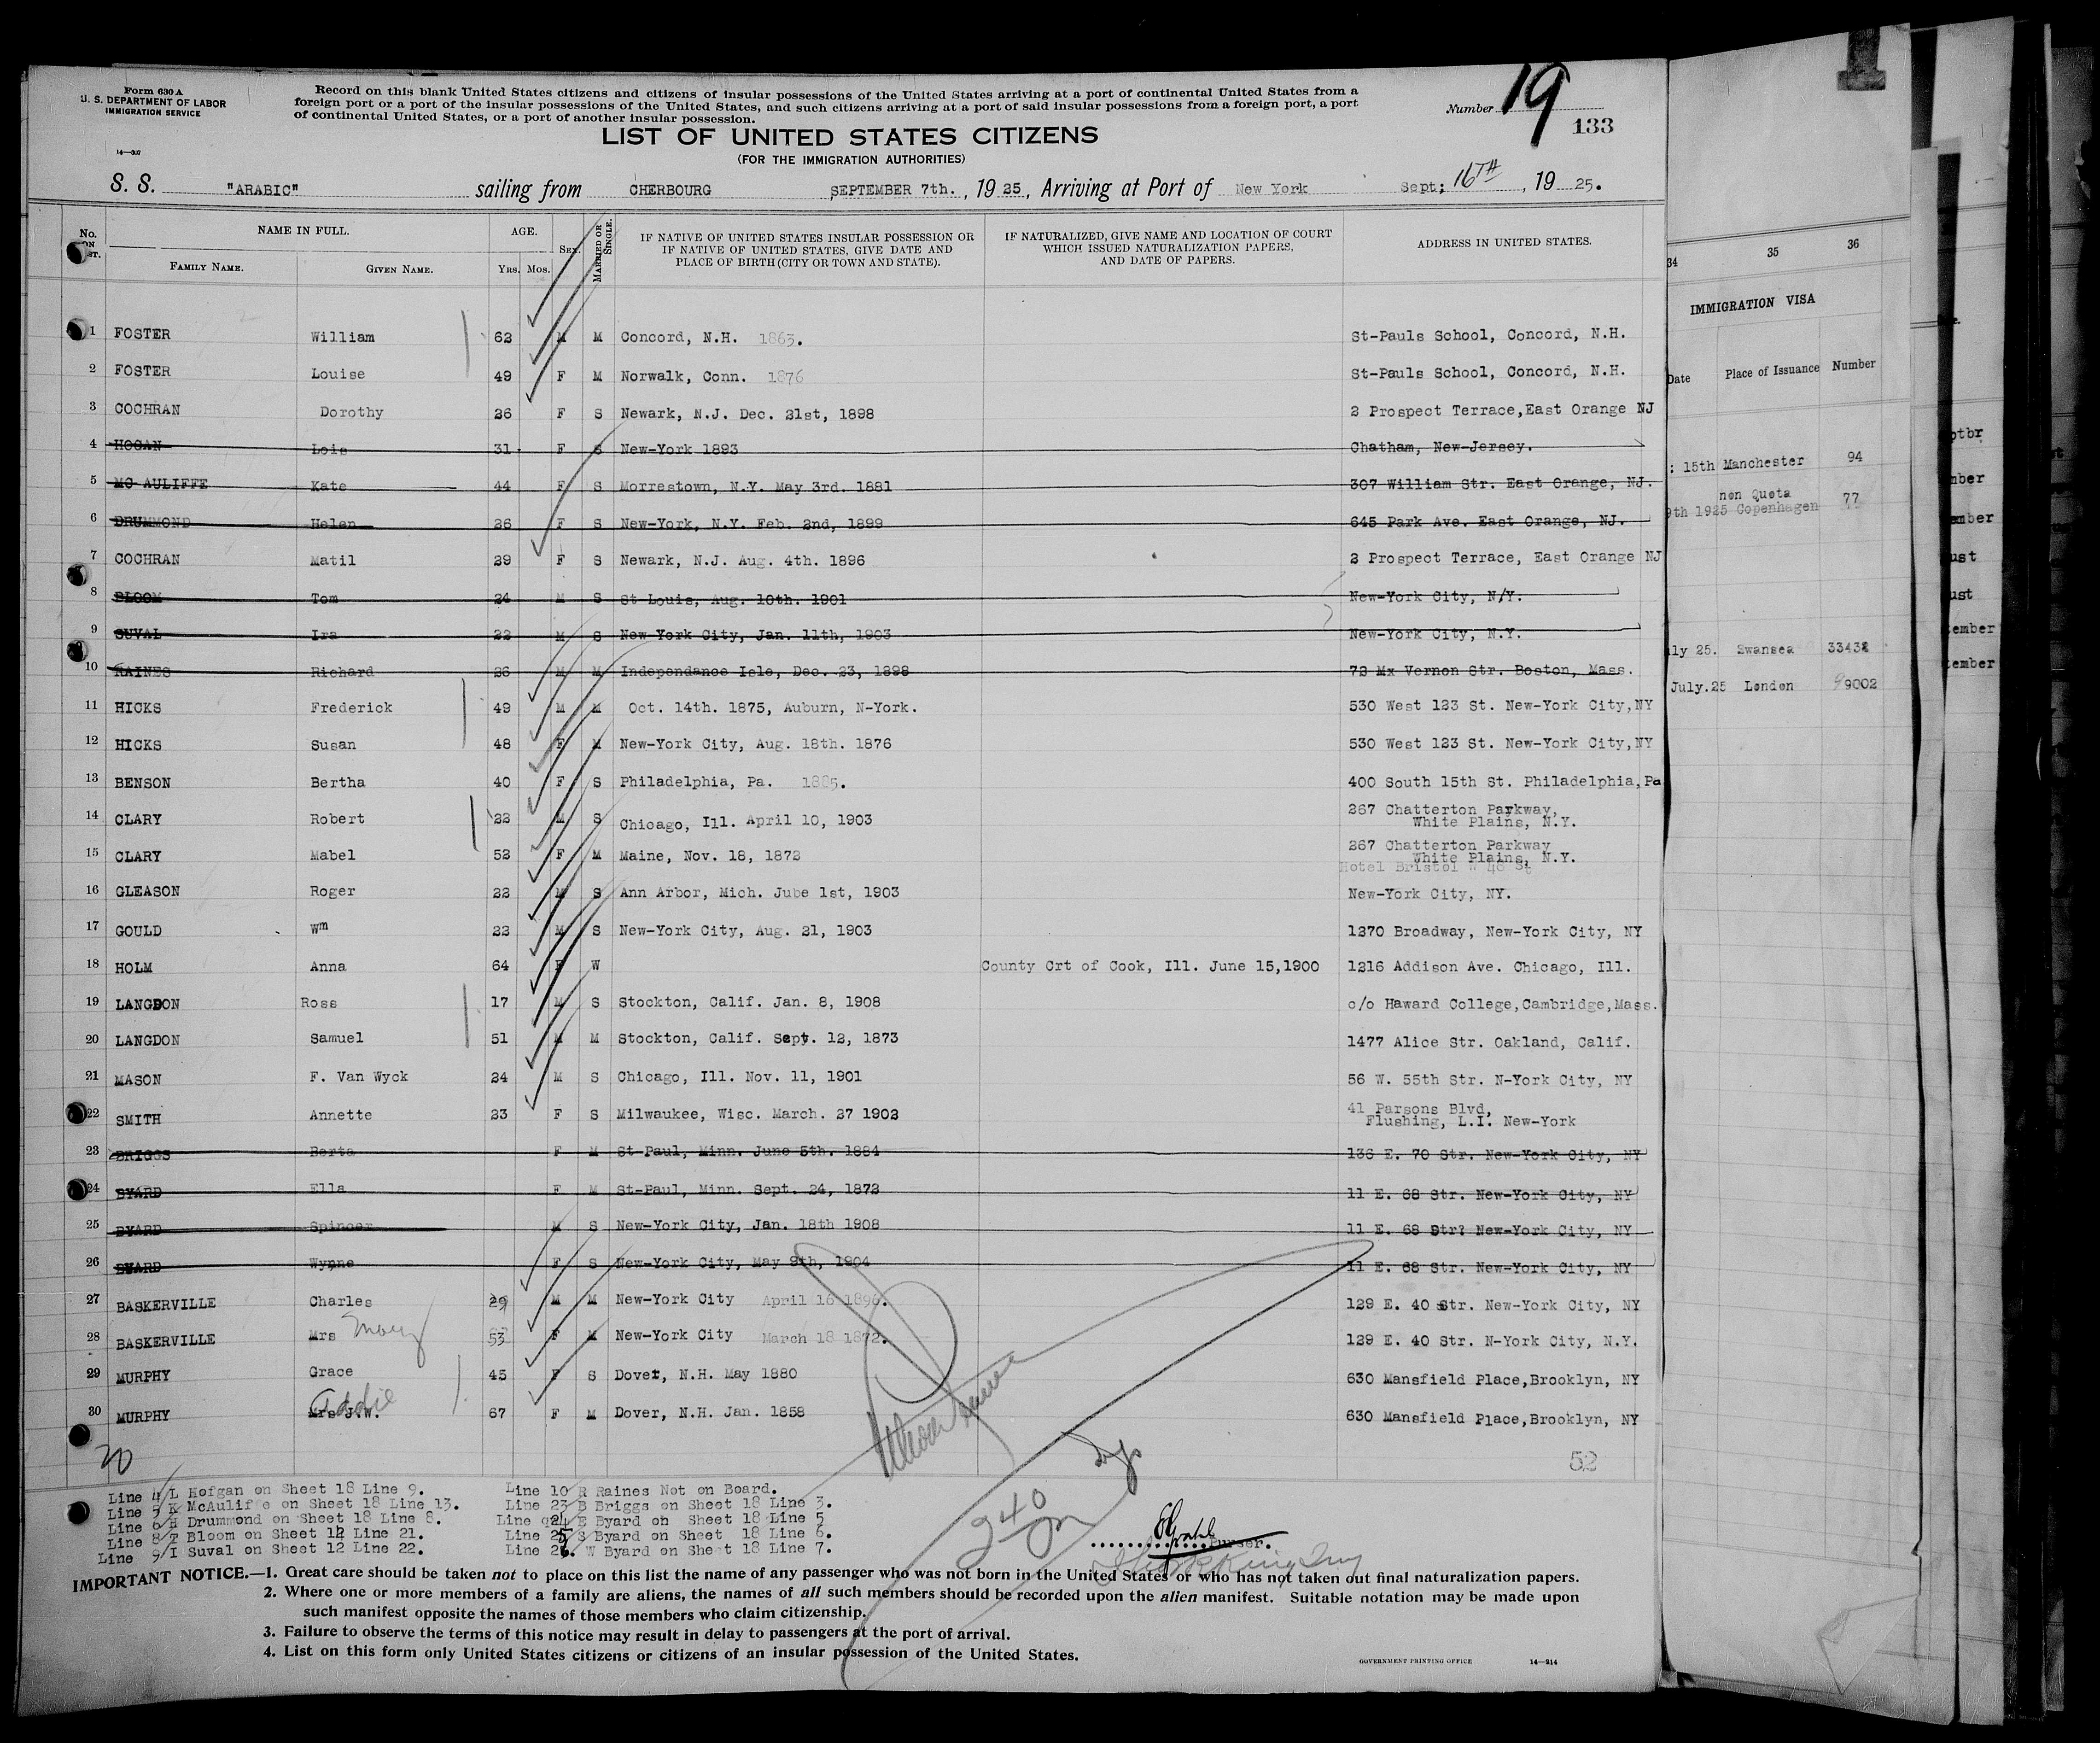 Form 630 A
U. S. DEPARTMENT OF LABOR
IMMIGRATION SERVICE
Record on this blank United States citizens and citizens of insular possessions of the United States arriving at a port of continental United States from a
foreign port or a port of the insular possessions of the United States, and such citizens arriving at a port of said insular possessions from a foreign port, a port
of continental United States, or a port of another insular possession.
Number 19
133
LIST OF UNITED STATES CITIZENS
(FOR THE IMMIGRATION AUTHORITIES)
S. S. "ARABIC" sailing from CHERBOURG SEPTEMBER 7th. , 19 25, Arriving at Port of New York Sept; 16TH , 19 25.
No. ON NAME IN FULL. AGE. Sex. MARRIED OR SINGLE. IF NATIVE OF UNITED STATES INSULAR POSSESSION OR IF NATIVE OF UNITED STATES, GIVE DATE AND PLACE OF BIRTH (CITY OR TOWN AND STATE). IF NATURALIZED, GIVE NAME AND LOCATION OF COURT WHICH ISSUED NATURALIZATION PAPERS, AND DATE OF PAPERS. ADDRESS IN UNITED STATES.
FAMILY NAME. GIVEN NAME. YRS. MOS.
1 FOSTER William 62 M M Concord, N.H. 1863. St-Pauls School, Concord, N.H.
2 FOSTER Louise 49 F M Norwalk, Conn. 1876 St-Pauls School, Concord, N.H.
3 COCHRAN Dorothy 26 F S Newark, N.J. Dec. 21st, 1898 2 Prospect Terrace,East Orange NJ
4 HOGAN Lois 31. F S New-York 1893 Chatham, New-Jersey.
5 MC AULIFFE Kate 44 F S Morrestown, N.Y. May 3rd. 1881 307 William Str. East Orange, NJ.
6 DRUMMOND Helen 26 F S New-York, N.Y. Feb. 2nd, 1899 645 Park Ave. East Orange, NJ.
7 COCHRAN Matil 29 F S Newark, N.J. Aug. 4th. 1896 2 Prospect Terrace, East Orange NJ
8 BLOOM Tom 24 M S St-Louis, Aug. 10th. 1901 New-York City, N/Y.
9 SUVAL Ira 22 M S New-York City, Jan. 11th, 1903 New-York City, N.Y.
10 RAINES Richard 26 M M Independance Isle, Dec. 23, 1898 72 Mx Vernon Str. Boston, Mass.
11 HICKS Frederick 49 M M Oct. 14th. 1875, Auburn, N-York. 530 West 123 St. New-York City,NY
12 HICKS Susan 48 F M New-York City, Aug. 18th. 1876 530 West 123 St. New-York City,NY
13 BENSON Bertha 40 F S Philadelphia, Pa. 1885. 400 South 15th St. Philadelphia,Pa
14 CLARY Robert 22 M S Chicago, Ill. April 10, 1903 267 Chatterton Parkway,
White Plains, N.Y.
15 CLARY Mabel 52 F M Maine, Nov. 18, 1872 267 Chatterton Parkway
White Plains, N.Y.
Hotel Bristol W 48 St
16 GLEASON Roger 22 M S Ann Arbor, Mich. Jube 1st, 1903 New-York City, NY.
17 GOULD Wm 22 M S New-York City, Aug. 21, 1903 1270 Broadway, New-York City, NY
18 HOLM Anna 64 F W County Crt of Cook, Ill. June 15,1900 1216 Addison Ave. Chicago, Ill.
19 LANGDON Ross 17 M S Stockton, Calif. Jan. 8, 1908 c/o Haward College,Cambridge,Mass.
20 LANGDON Samuel 51 M M Stockton, Calif. Sept. 12, 1873 1477 Alice Str. Oakland, Calif.
21 MASON F. Van Wyck 24 M S Chicago, Ill. Nov. 11, 1901 56 W. 55th Str. N-York City, NY
22 SMITH Annette 23 F S Milwaukee, Wisc. March. 27 1902 41 Parsons Blvd,
Flushing, L.I. New-York
23 BRIGGS Berta F M St-Paul, Minn. June 5th. 1884 136 E. 70 Str. New-York City, NY
24 BYARD Ella F M St-Paul, Minn. Sept. 24, 1872 11 E. 68 Str. New-York City, NY
25 BYARD Spincer M S New-York City, Jan. 18th 1908 11 E. 68 Str? New-York City, NY
26 BYARD Wynne F S New-York City, May 9th, 1904 11 E. 68 Str. New-York City, NY
27 BASKERVILLE Charles 29 M M New-York City April 16 1896. 129 E. 40 Str. New-York City, NY
28 BASKERVILLE Mrs Mary 53 F M New-York City March 18 1872. 129 E. 40 Str. N-York City, N.Y.
29 MURPHY Grace 45 F S Dover, N.H. May 1880 630 Mansfield Place,Brooklyn, NY
30 MURPHY Mrs J.W. Addie 67 F M Dover, N.H. Jan. 1858 630 Mansfield Place,Brooklyn, NY
20
52
Line 4/L Hofgan on Sheet 18 Line 9. Line 10 R Raines Not on Board.
Line 5 K McAuliffe on Sheet 18 Line 13. Line 23 B Briggs on Sheet 18 Line 3.
Line 6/H Drummond on Sheet 18 Line 8. Line 24 E Byard on Sheet 18 Line 5
Line 8/T Bloom on Sheet 12 Line 21. Line 25 S Byard on Sheet 18 Line 6.
Line 9/I Suval on Sheet 12 Line 22. Line 26. W Byard on Sheet 18 Line 7.
240
Purser.
IMPORTANT NOTICE.—1. Great care should be taken not to place on this list the name of any passenger who was not born in the United States or who has not taken out final naturalization papers.
2. Where one or more members of a family are aliens, the names of all such members should be recorded upon the alien manifest. Suitable notation may be made upon
such manifest opposite the names of those members who claim citizenship.
3. Failure to observe the terms of this notice may result in delay to passengers at the port of arrival.
4. List on this form only United States citizens or citizens of an insular possession of the United States.
GOVERNMENT PRINTING OFFICE 14—214
34 35 36
IMMIGRATION VISA
Date Place of Issuance Number
: 15th Manchester 94
non Quota
9th 1925 Copenhagen 77
ly 25. Swansea 33438
July.25 London 99002